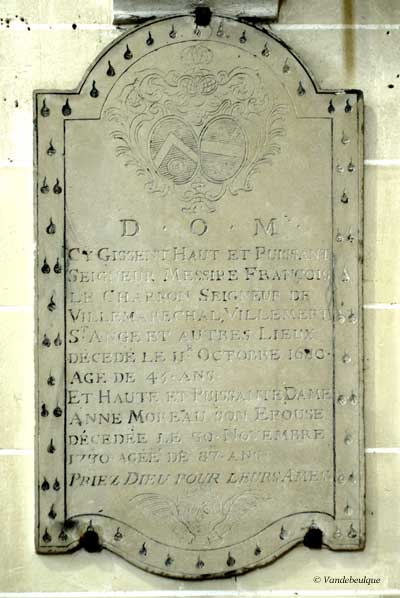 D · O · M ·
CY GISSENT HAUT ET PUISSANT
SEIGNEUR MESSIRE FRANÇOIS
LE CHARRON SEIGNEUR DE
VILLEMARECHAL, VILLEMERT
S.T ANGE ET AUTRES LIEUX
DÉCÉDÉ LE 11.E OCTOBRE
AGE DE 45 · ANS
ET HAUTE ET PUISSANTE DAME
ANNE MOREAU SON EPOUSE
DÉCÉDÉE LE NOVEMBRE
AGEÉ DE 87 · ANS
PRIEZ DIEU POUR LEURS AMES
© Vandebeulque